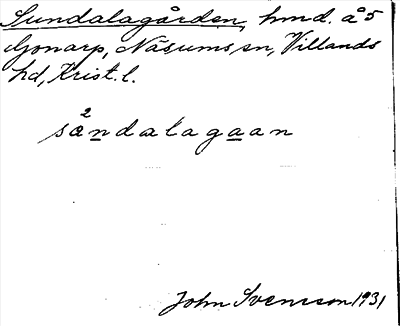 Sundalagården, hmd. å 5
Gonarp, Näsums sn, Villands
hd, Krist. l.
2
sændalagaan
John Svensson 1931